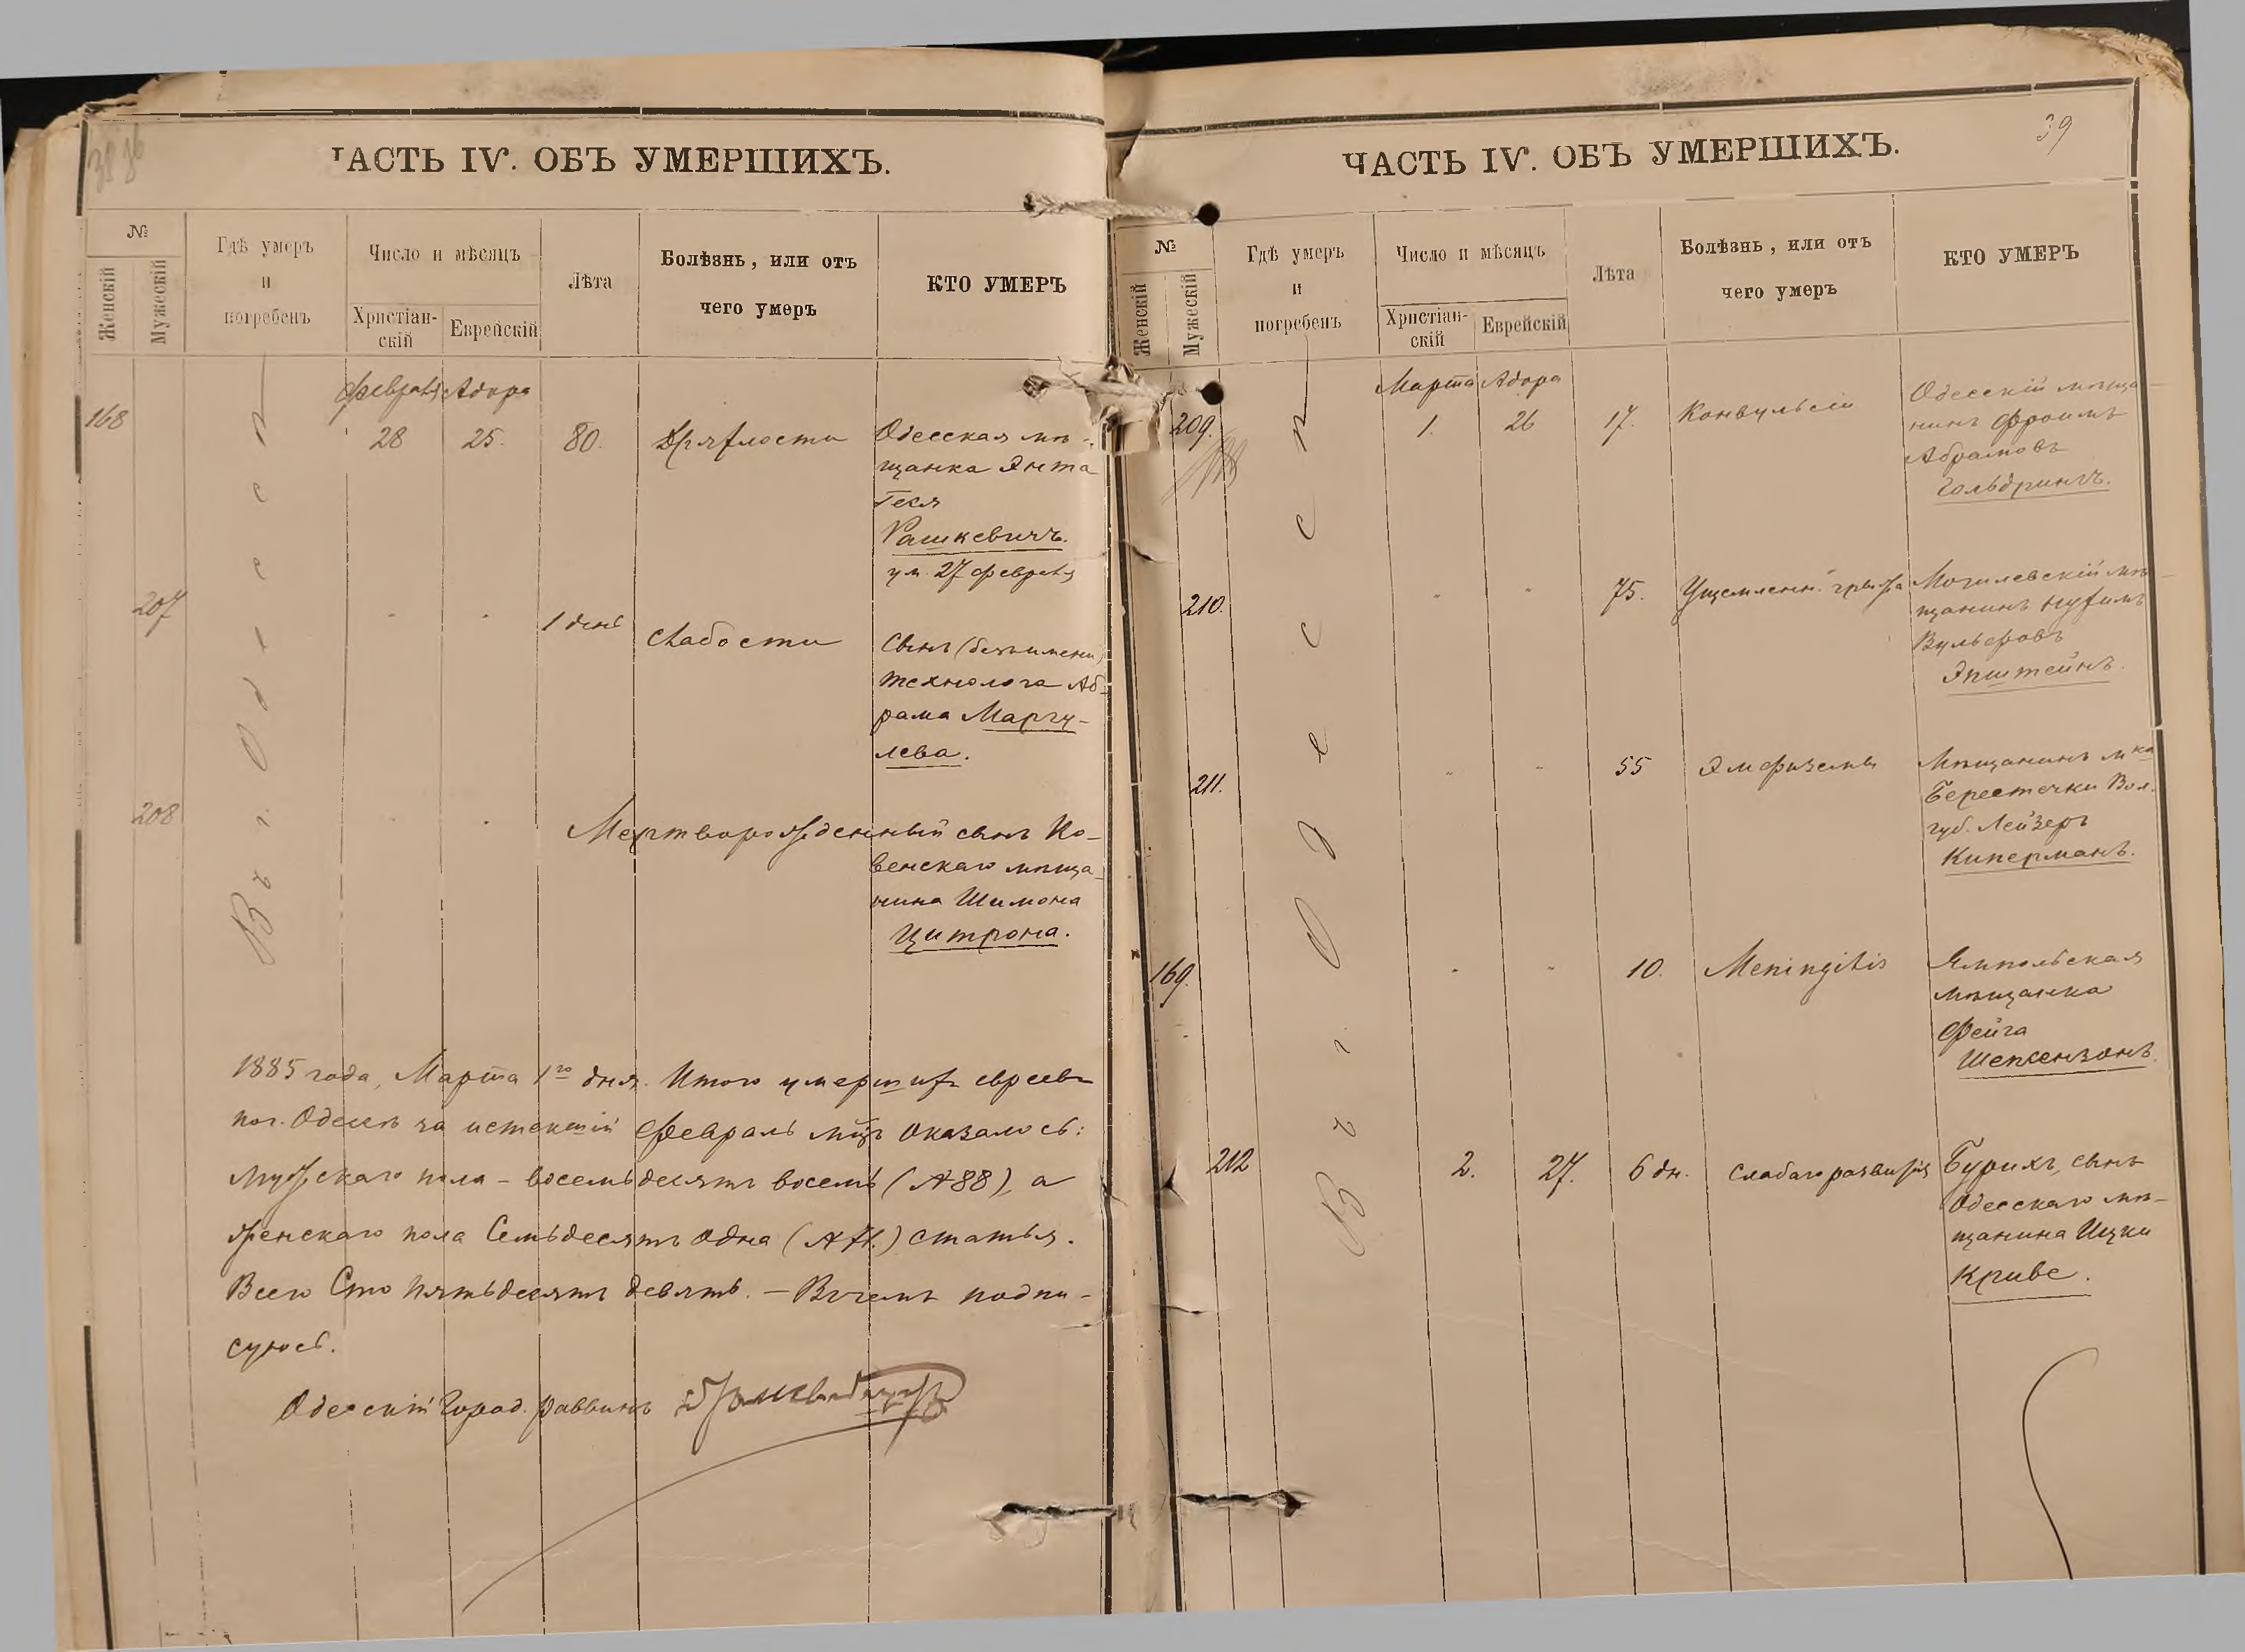 ЧАСТЬ IV. ОБЪ УМЕРШИХЪ.
№
Женскій
Мужескій
Гдѣ умеръ
и
погребенъ
Число и мѣсяцъ
Христіан-
скій
Еврейскій
Лѣта
Болѣзнь, или отъ
чего умеръ
КТО УМЕРЪ
Въ г. Одессѣ
Февраля Адора
168 28 25. 80. Дряхлости Одесская мѣ-
щанка Энта
Гекя
Рашкевичъ.
ум. 27 февраля
207 " " 1 день слабости Сынъ (безъ имени)
технолога Аб-
рама Маргу-
лева.
208 " " Мертворожденный сынъ Ко-
венскаго мѣща-
нина Шимона
Цитрона.
1885 года, Марта 1го дня. Итого умершихъ евреевъ
по г. Одессѣ за истекшій Февраль мцъ оказалось:
мужскаго пола - восемьдесятъ восемь (№ 88), а
женскаго пола Семьдесятъ одна (№ 71.) статья.
Всего Сто пятьдесятъ девять. - В чемъ подпи-
суюсь.
Одесскій Город. раввинъ
39
ЧАСТЬ IV. ОБЪ УМЕРШИХЪ.
№
Женскій
Мужескій
Гдѣ умеръ
и
погребенъ
Число и мѣсяцъ
Христіан-
скій
Еврейскій
Лѣта
Болѣзнь, или отъ
чего умеръ
КТО УМЕРЪ
Въ г. Одессѣ
Марта Адора
209. 1. 26 17. Конвульсіи Одесскій мѣща-
нинъ Фроимъ
Абрамовъ
Гольдрингъ.
210. " " 75. Ущемленн. грыжа Могилевскій мѣ-
щанинъ Нухимъ
Вульфовъ
Эпштейнъ.
211. " " 55 Эмфиземы Мѣщанинъ мка
Берестечки Вол.
губ. Лейзеръ
Киперманъ.
169. " " 10. Meningitis Ямпольская
мѣщанка
Фейга
Шепсензонъ.
212 2. 27. 6 дн. слабаго развитія Бурихъ, сынъ
Одесскаго мѣ-
щанина Ицки
Криве.